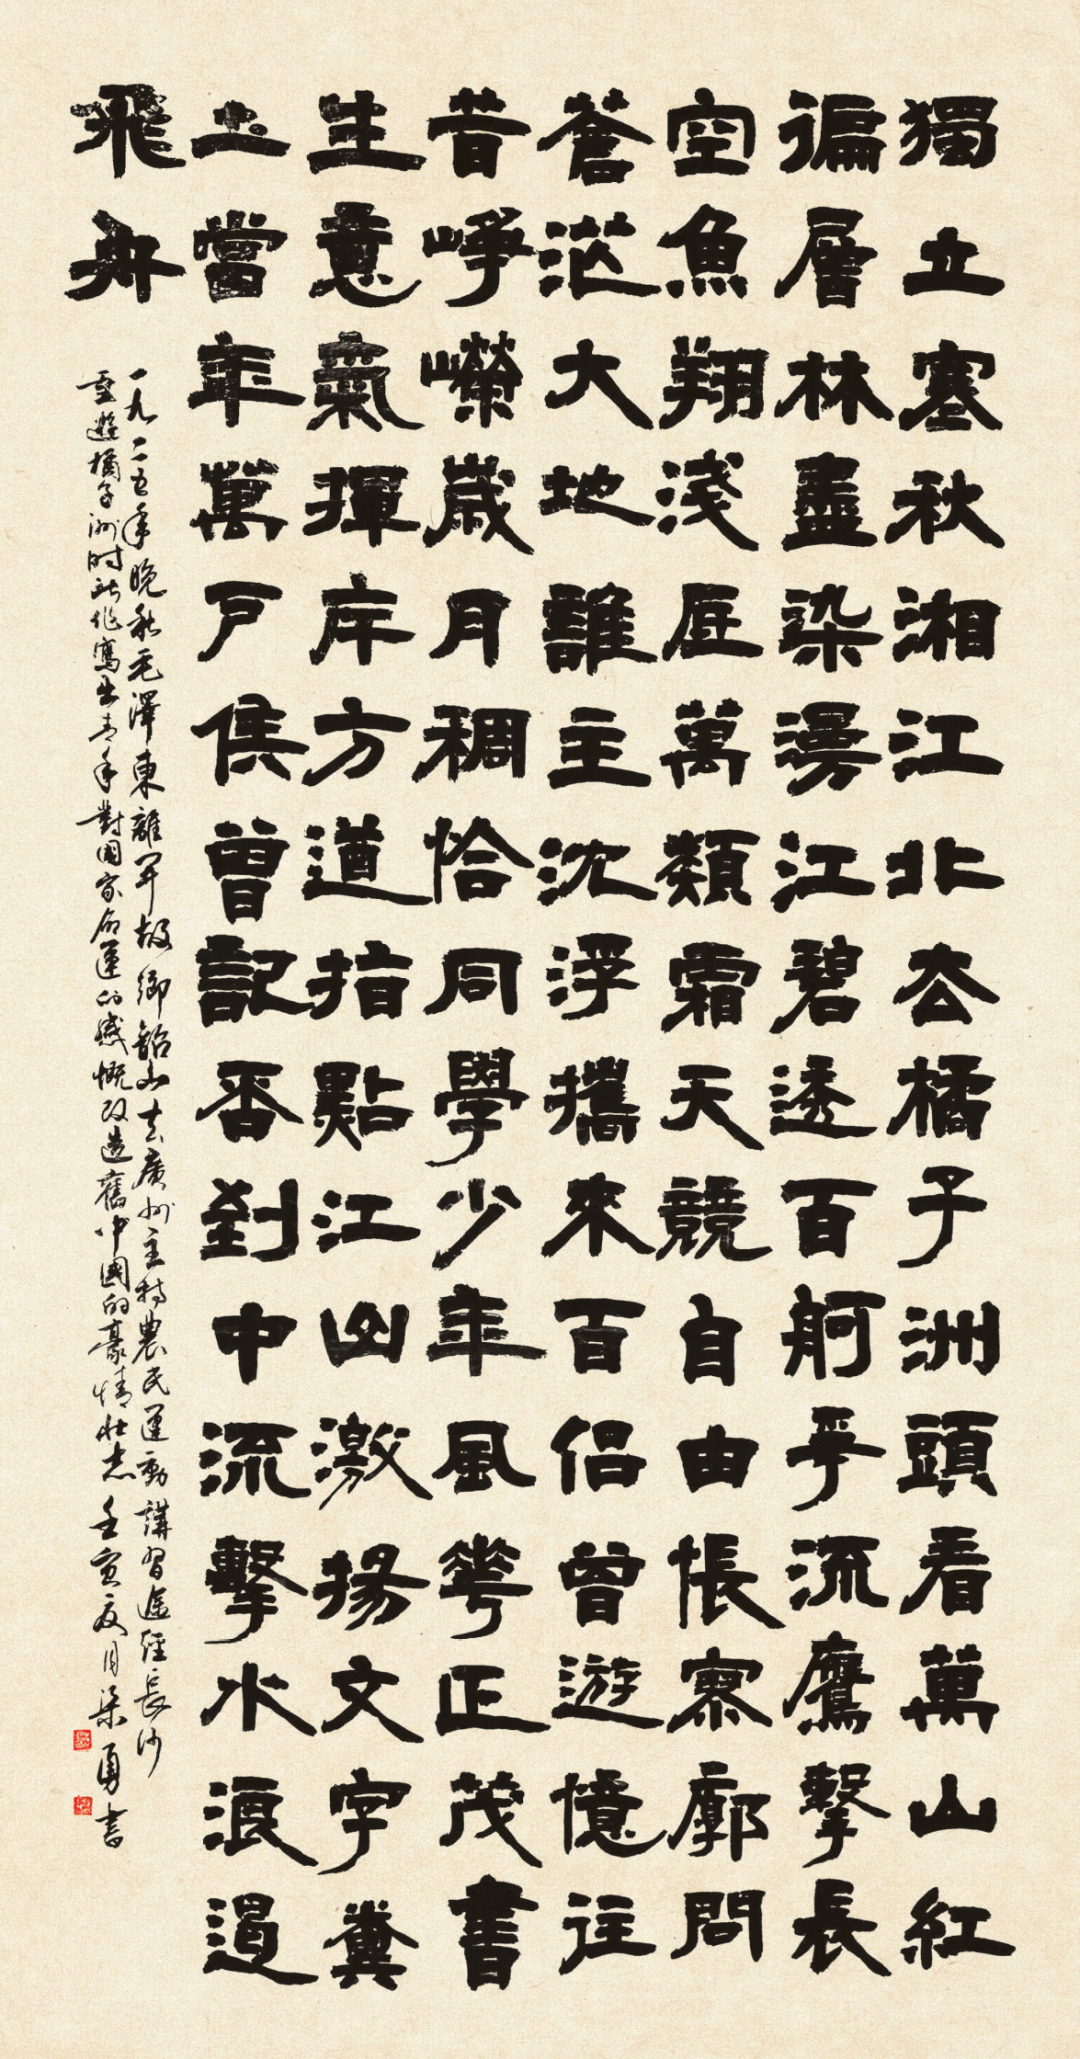 獨立寒秋湘江北去橘子洲頭看萬山紅
徧層林盡染漫江碧透百舸爭流鷹擊長
空魚翔淺底萬類霜天競自由悵寥廓問
蒼茫大地誰主沈浮攜來百侶曾遊憶往
昔崢嶸歲月稠恰同學少年風華正茂書
生意氣揮斥方遒指點江山激揚文字糞
土當年萬戶侯曾記否到中流擊水浪遏
飛舟
一九二五年晚秋毛澤東離开故鄉韶山去廣州主持農民運動講習途經長沙
重遊橘子洲时所作寫出青年對國家命運的感慨改造舊中國的豪情壯志壬寅夏月梁勇書